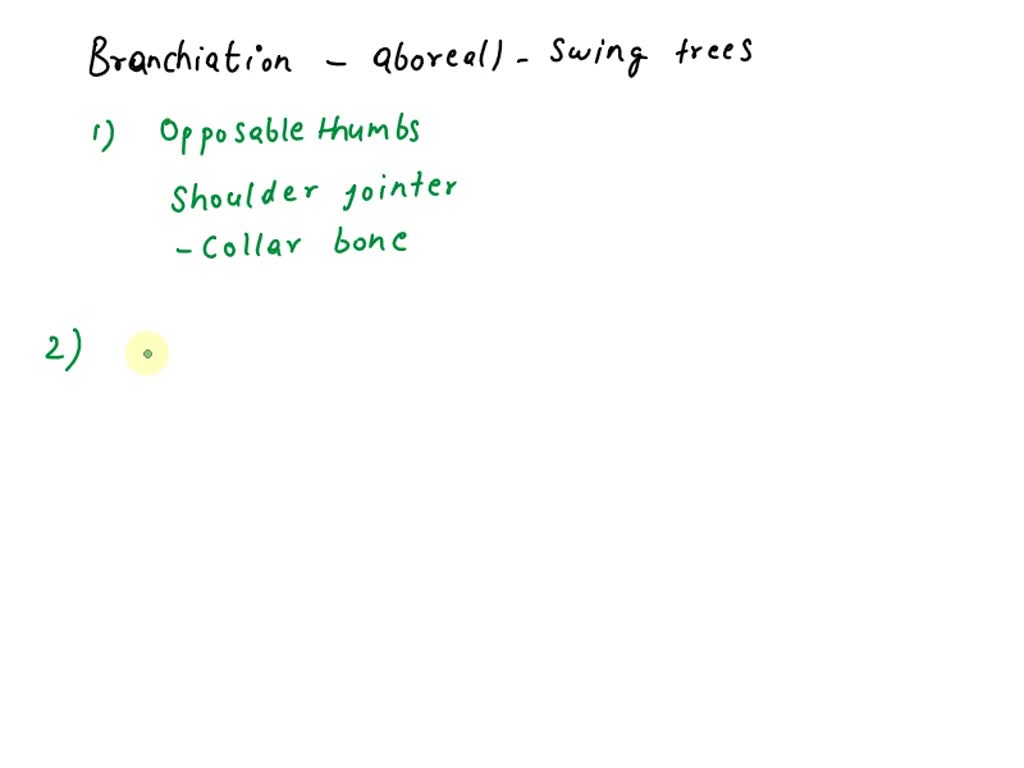 Branchiation - aboreal) - Swing trees
1) Opposable thumbs
Shoulder jointer
- Collar bone
2)